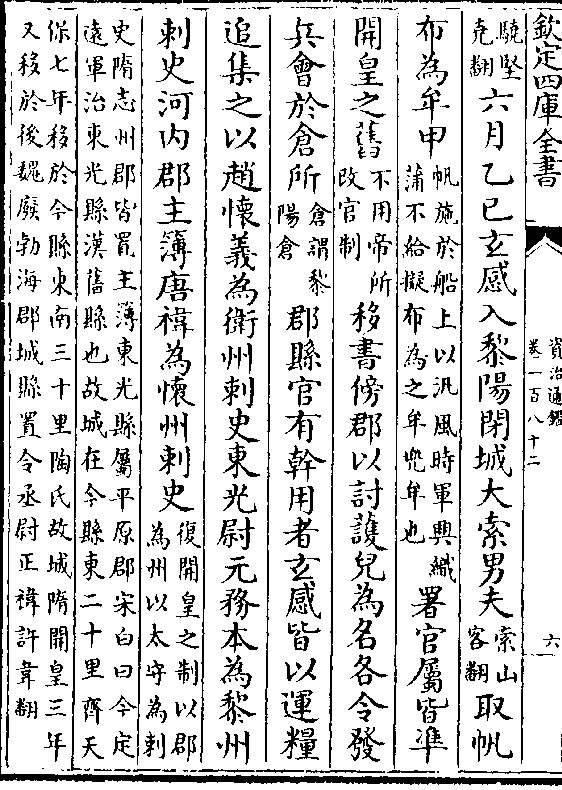 欽定四庫全書
資治通鑑
卷一百八十二
六
驍堅
堯翻
六月乙巳玄感入黎陽閉城大索男夫
索山
客翻
取帆
布為牟甲
帆施於船上以汎風時軍興織
蒲不給擬布為之牟兜牟也
署官屬皆準
開皇之舊
不用帝所
改官制
移書傍郡以討護兒為名各令發
兵會於倉所
倉謂黎
陽倉
郡縣官有幹用者玄感皆以運糧
追集之以趙懷義為衛州刺史東光尉元務本為黎州
刺史河内郡主簿唐禕為懷州刺史
復開皇之制以郡
為州以太守為刺
史隋志州郡皆置主簿東光縣屬平原郡宋白曰今定
遠軍治東光縣漢舊縣也故城在今縣東二十里齊天
保七年移於今縣東南三十里陶氏故城隋開皇三年
又移於後魏廢勃海郡城縣置令丞尉正禕許韋翻